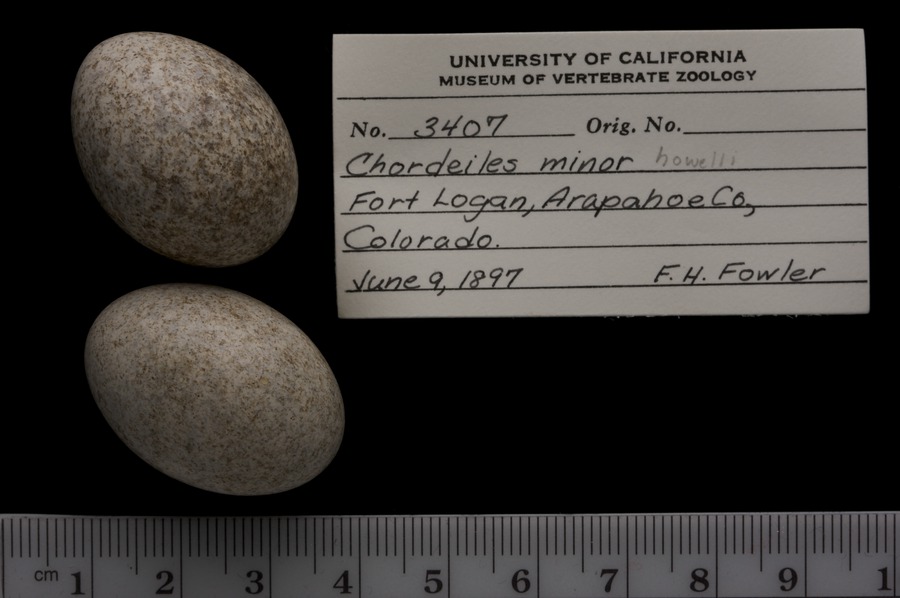 UNIVERSITY OF CALIFORNIA
MUSEUM OF VERTEBRATE ZOOLOGY
No. 3407 Orig. No.
Chordeiles minor howelli
Fort Logan, Arapahoe Co,
Colorado.
June 9, 1897 F. H. Fowler
cm 1 2 3 4 5 6 7 8 9 1